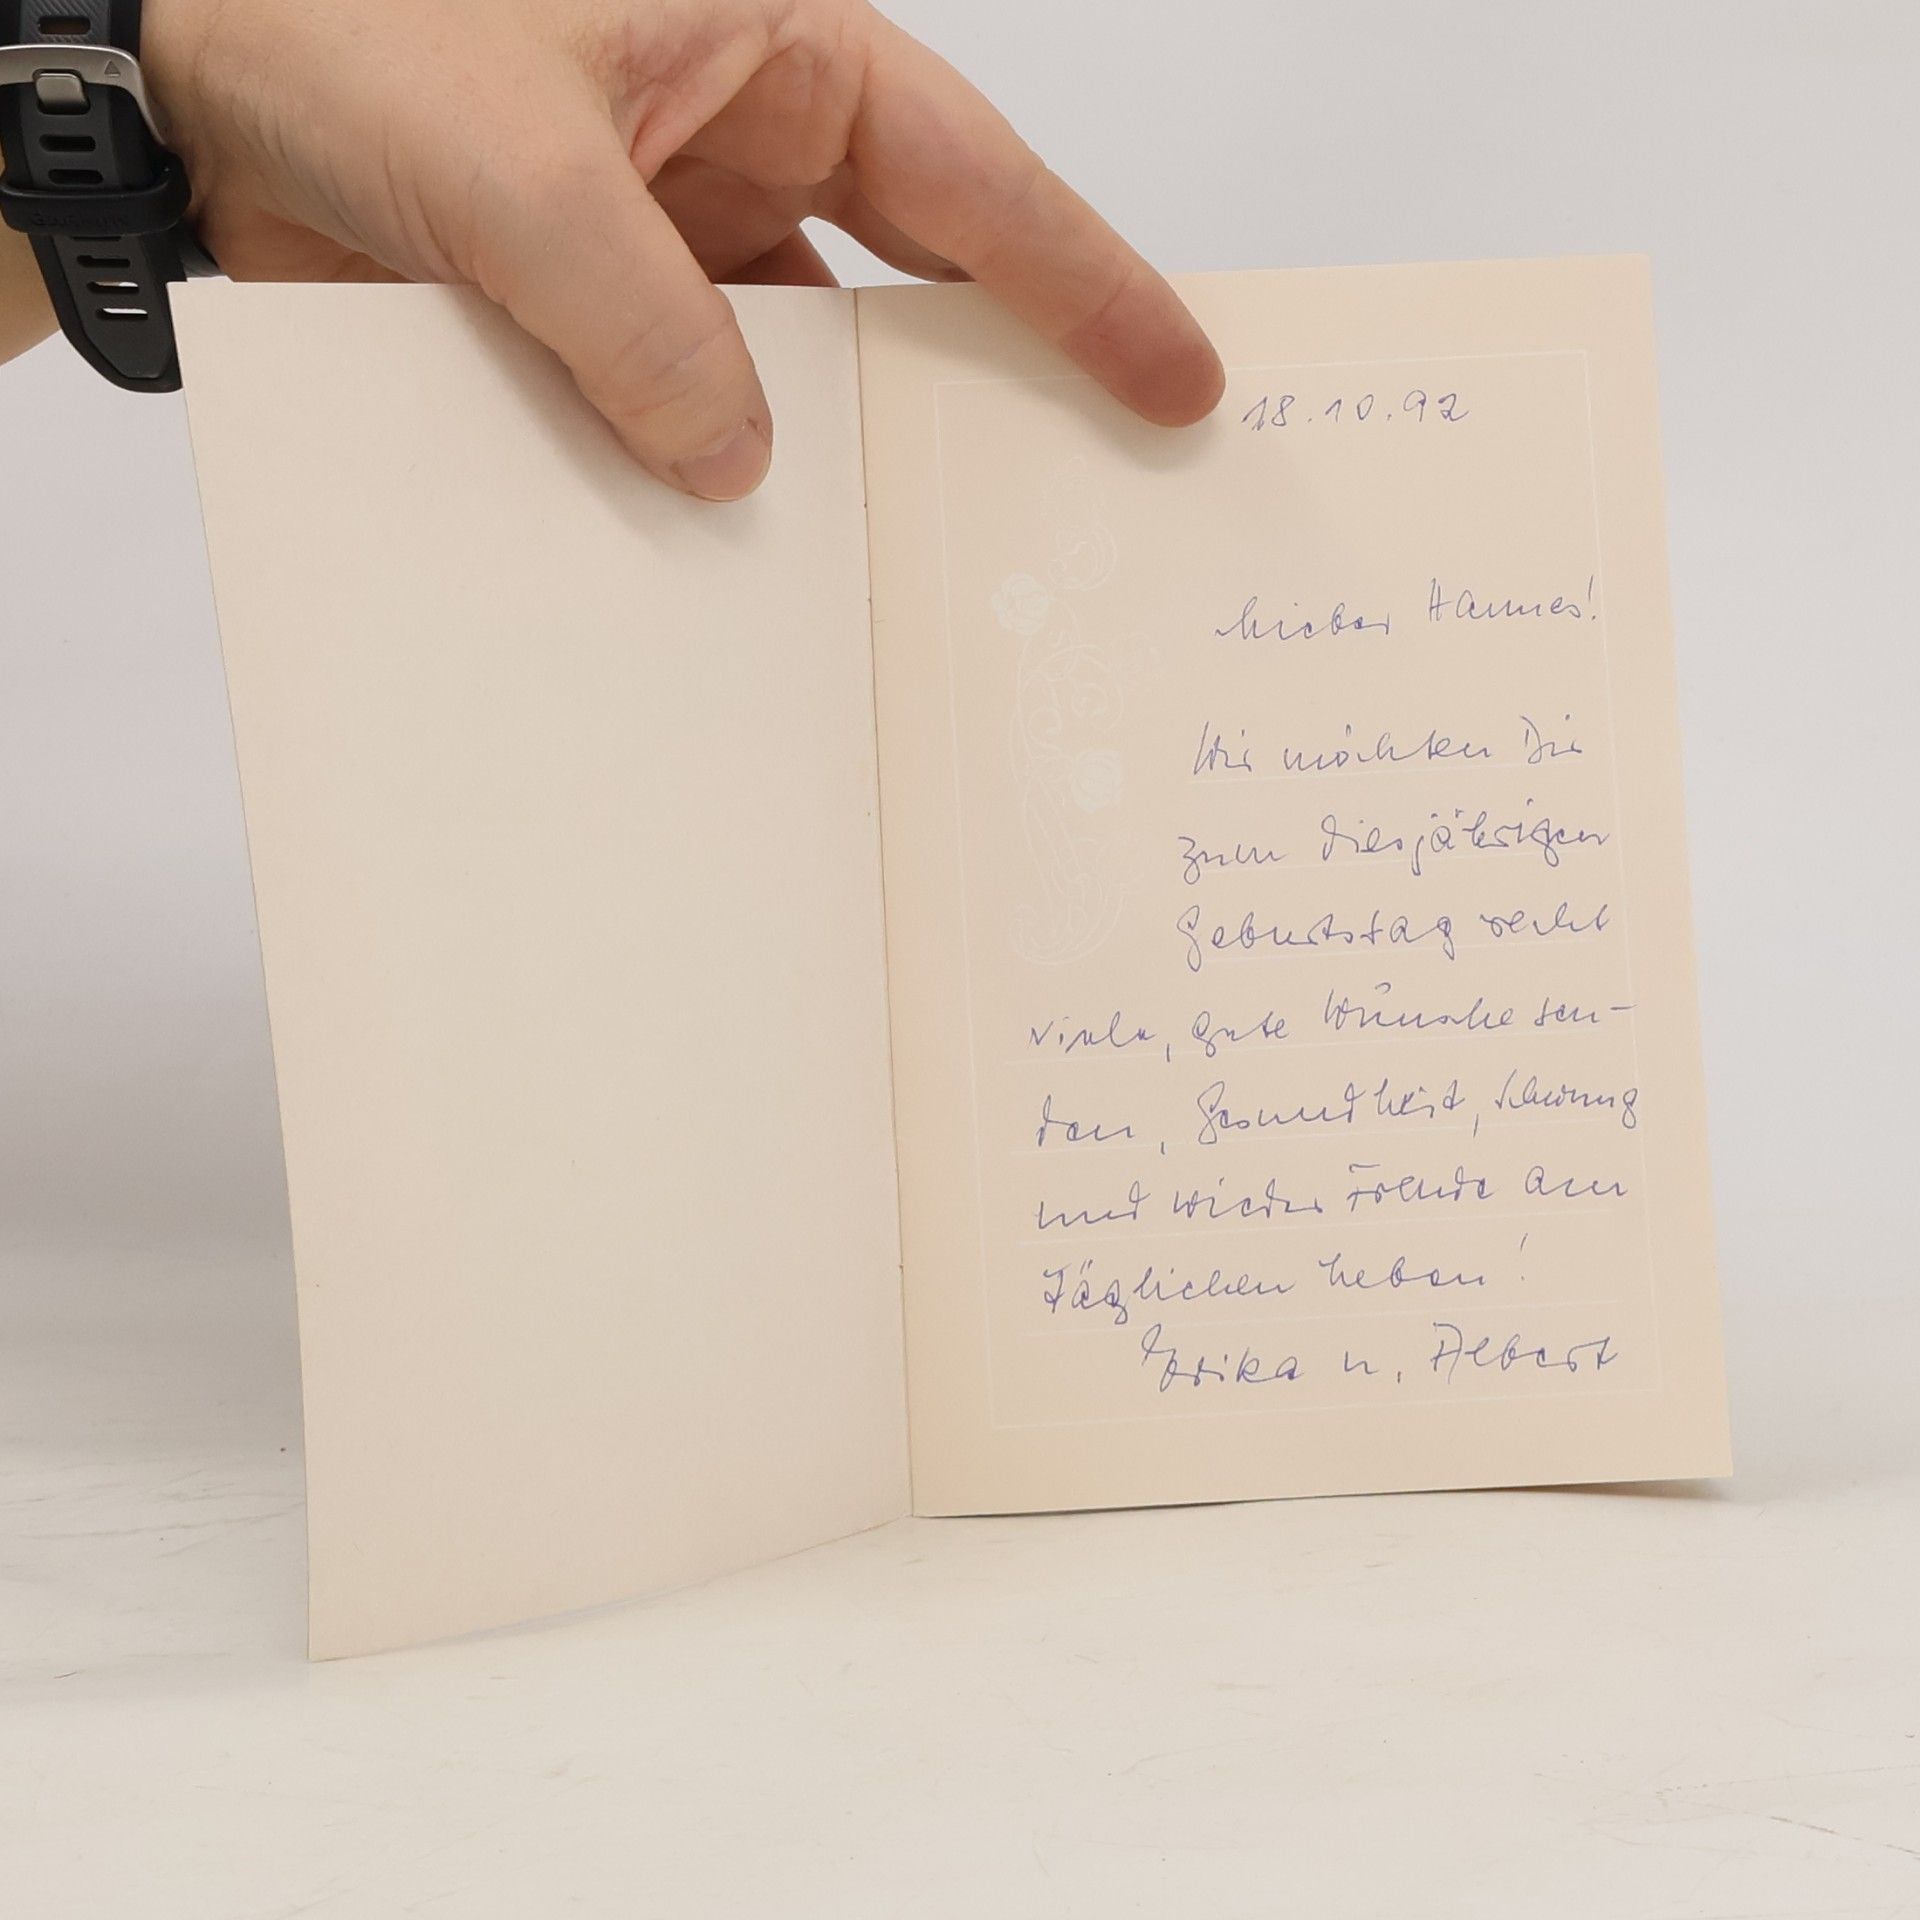 18.10.92
Lieber Hannes!
Wir möchten Dir
zum diesjährigen
Geburtstag recht
viele, gute Wünsche sen-
den, Gesundheit, Schwung
und wieder Freude am
Täglichen Leben!
Erika u. Albert